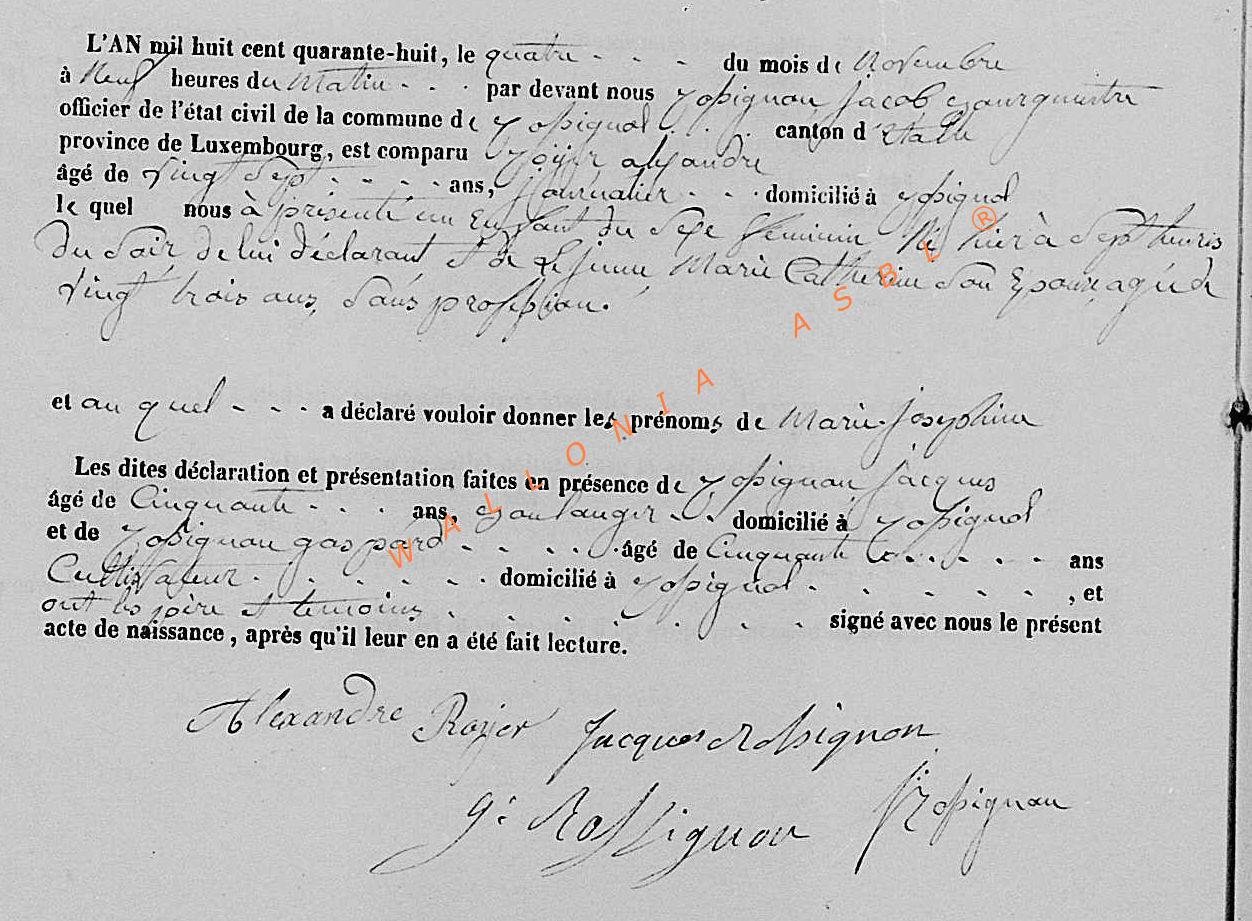 L'AN mil huit cent quarante-huit, le quatre - - - du mois de Novembre
à Neuf heures du Matin - - - par devant nous Rossignon Jacob Bourgmestre
officier de l'état civil de la commune de Rossignol . . . . canton d'Etalle
province de Luxembourg, est comparu Royer alexandre
âgé de Vingt Sept - - - - ans, Journalier - - - domicilié à Rossignol
le quel nous à présenté un Enfant du Sexe féminin Né hier à Sept heures
du Soir, de lui déclarant et de Lejeune Marie Catherine Son Epouse, agée de
Vingt trois ans, Sans profession.
et au quel - - - a déclaré vouloir donner les prénoms de Marie-Josephine
Les dites déclaration et présentation faites en présence de Rossignon Jacques
âgé de Cinquante - - - ans, Boulanger - - domicilié à Rossignol
et de Rossignon gaspard - - - - - âgé de Cinquante - - - - ans
Cultivateur - - - - - - domicilié à Rossignol - - - - - , et
ont les père et temoins - - - - - - - - signé avec nous le présent
acte de naissance, après qu'il leur en a été fait lecture.
Alexandre Royer Jacques Rossignon
g: Rossignon Rossignon
WALLONIA ASBL ®